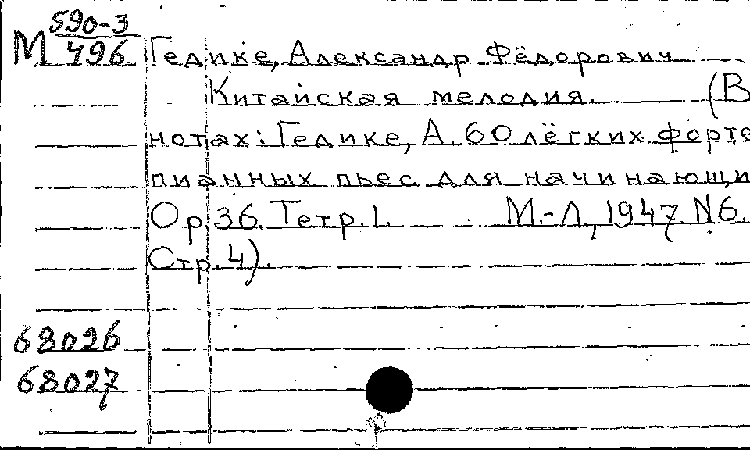 590-3
М 496 Гедике, Александр Фёдорович
Китайская мелодия. (В
нотах: Гедике, А. 60 лёгких форте
пианных пьес для начинающи
Ор. 36. Тетр. 1. М.-Л., 1947. N6.
Стр. 4).
68026
68027